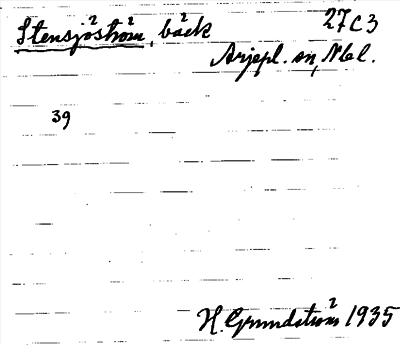 Stensjöström, back 27C3
Arjepl. sn, Nbl.
39
H. Grundström 1935